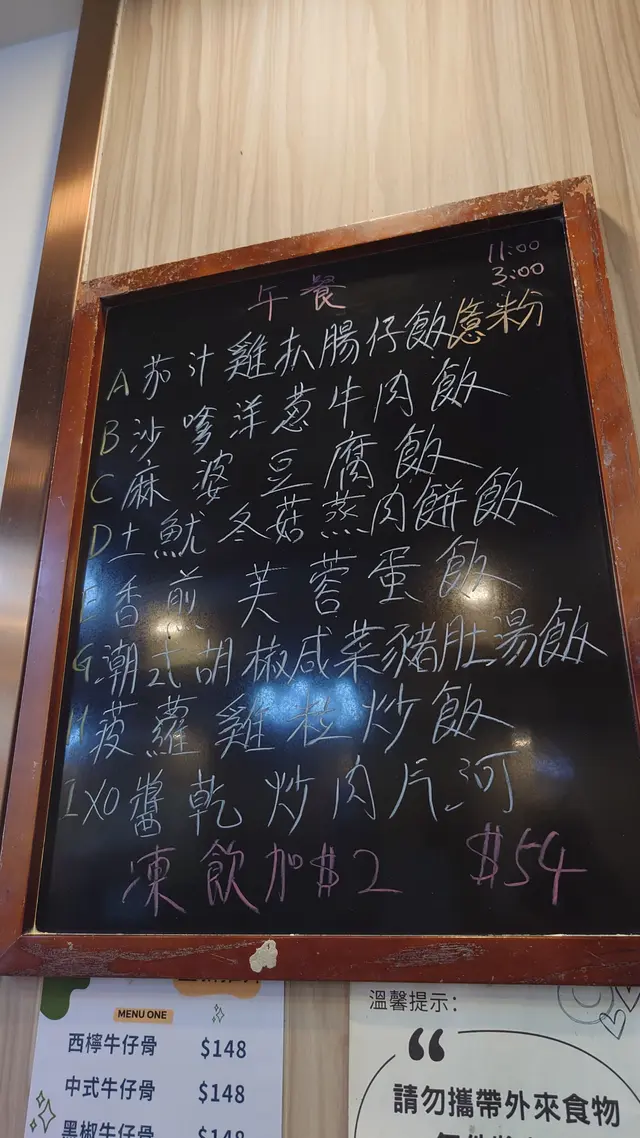 11:00
3:00
午餐
A 茄汁雞扒腸仔飯意粉
B 沙嗲洋葱牛肉飯
C 麻婆豆腐飯
D 土魷冬菇蒸肉餅飯
E 香煎芙蓉蛋飯
G 潮式胡椒咸菜豬肚湯飯
H 菠蘿雞粒炒飯
I XO醬乾炒肉片河
凍飲加$2 $54
MENU ONE
西檸牛仔骨 $148
中式牛仔骨 $148
黑椒牛仔骨 $148
溫馨提示：
請勿攜帶外來食物